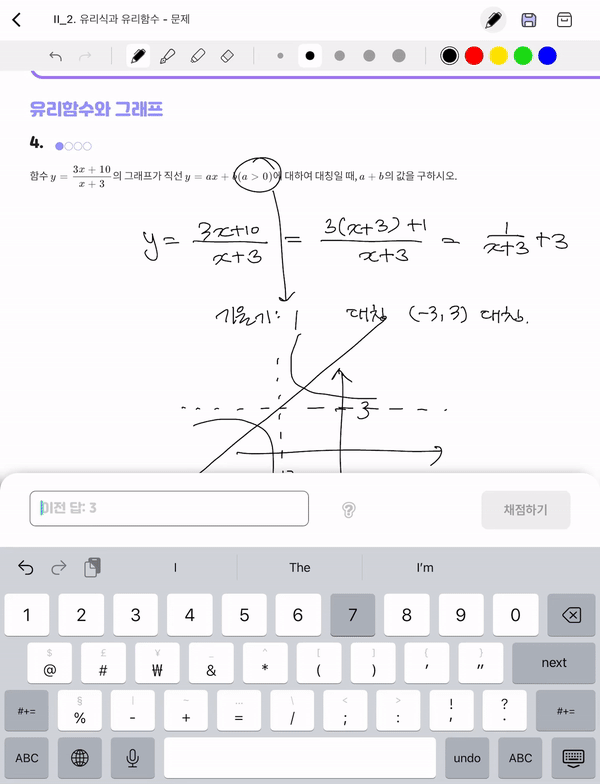 II_2. 유리식과 유리함수 - 문제
유리함수와 그래프
4.
함수 y = (3x + 10)/(x + 3) 의 그래프가 직선 y = ax + b(a > 0)에 대하여 대칭일 때, a + b의 값을 구하시오.
y = (3x+10)/(x+3) = (3(x+3)+1)/(x+3) = 1/(x+3) + 3
기울기: 1 대칭 (-3, 3) 대칭.
3
이전 답: 3
?
채점하기
I The I'm
1 2 3 4 5 6 7 8 9 0
$ £ ¥ _ ^ [ ] { }
@ # ₩ & * ( ) ' " next
§ | ~ … \ < >
#+= % - + = / ; : ! ? #+=
, .
ABC undo ABC